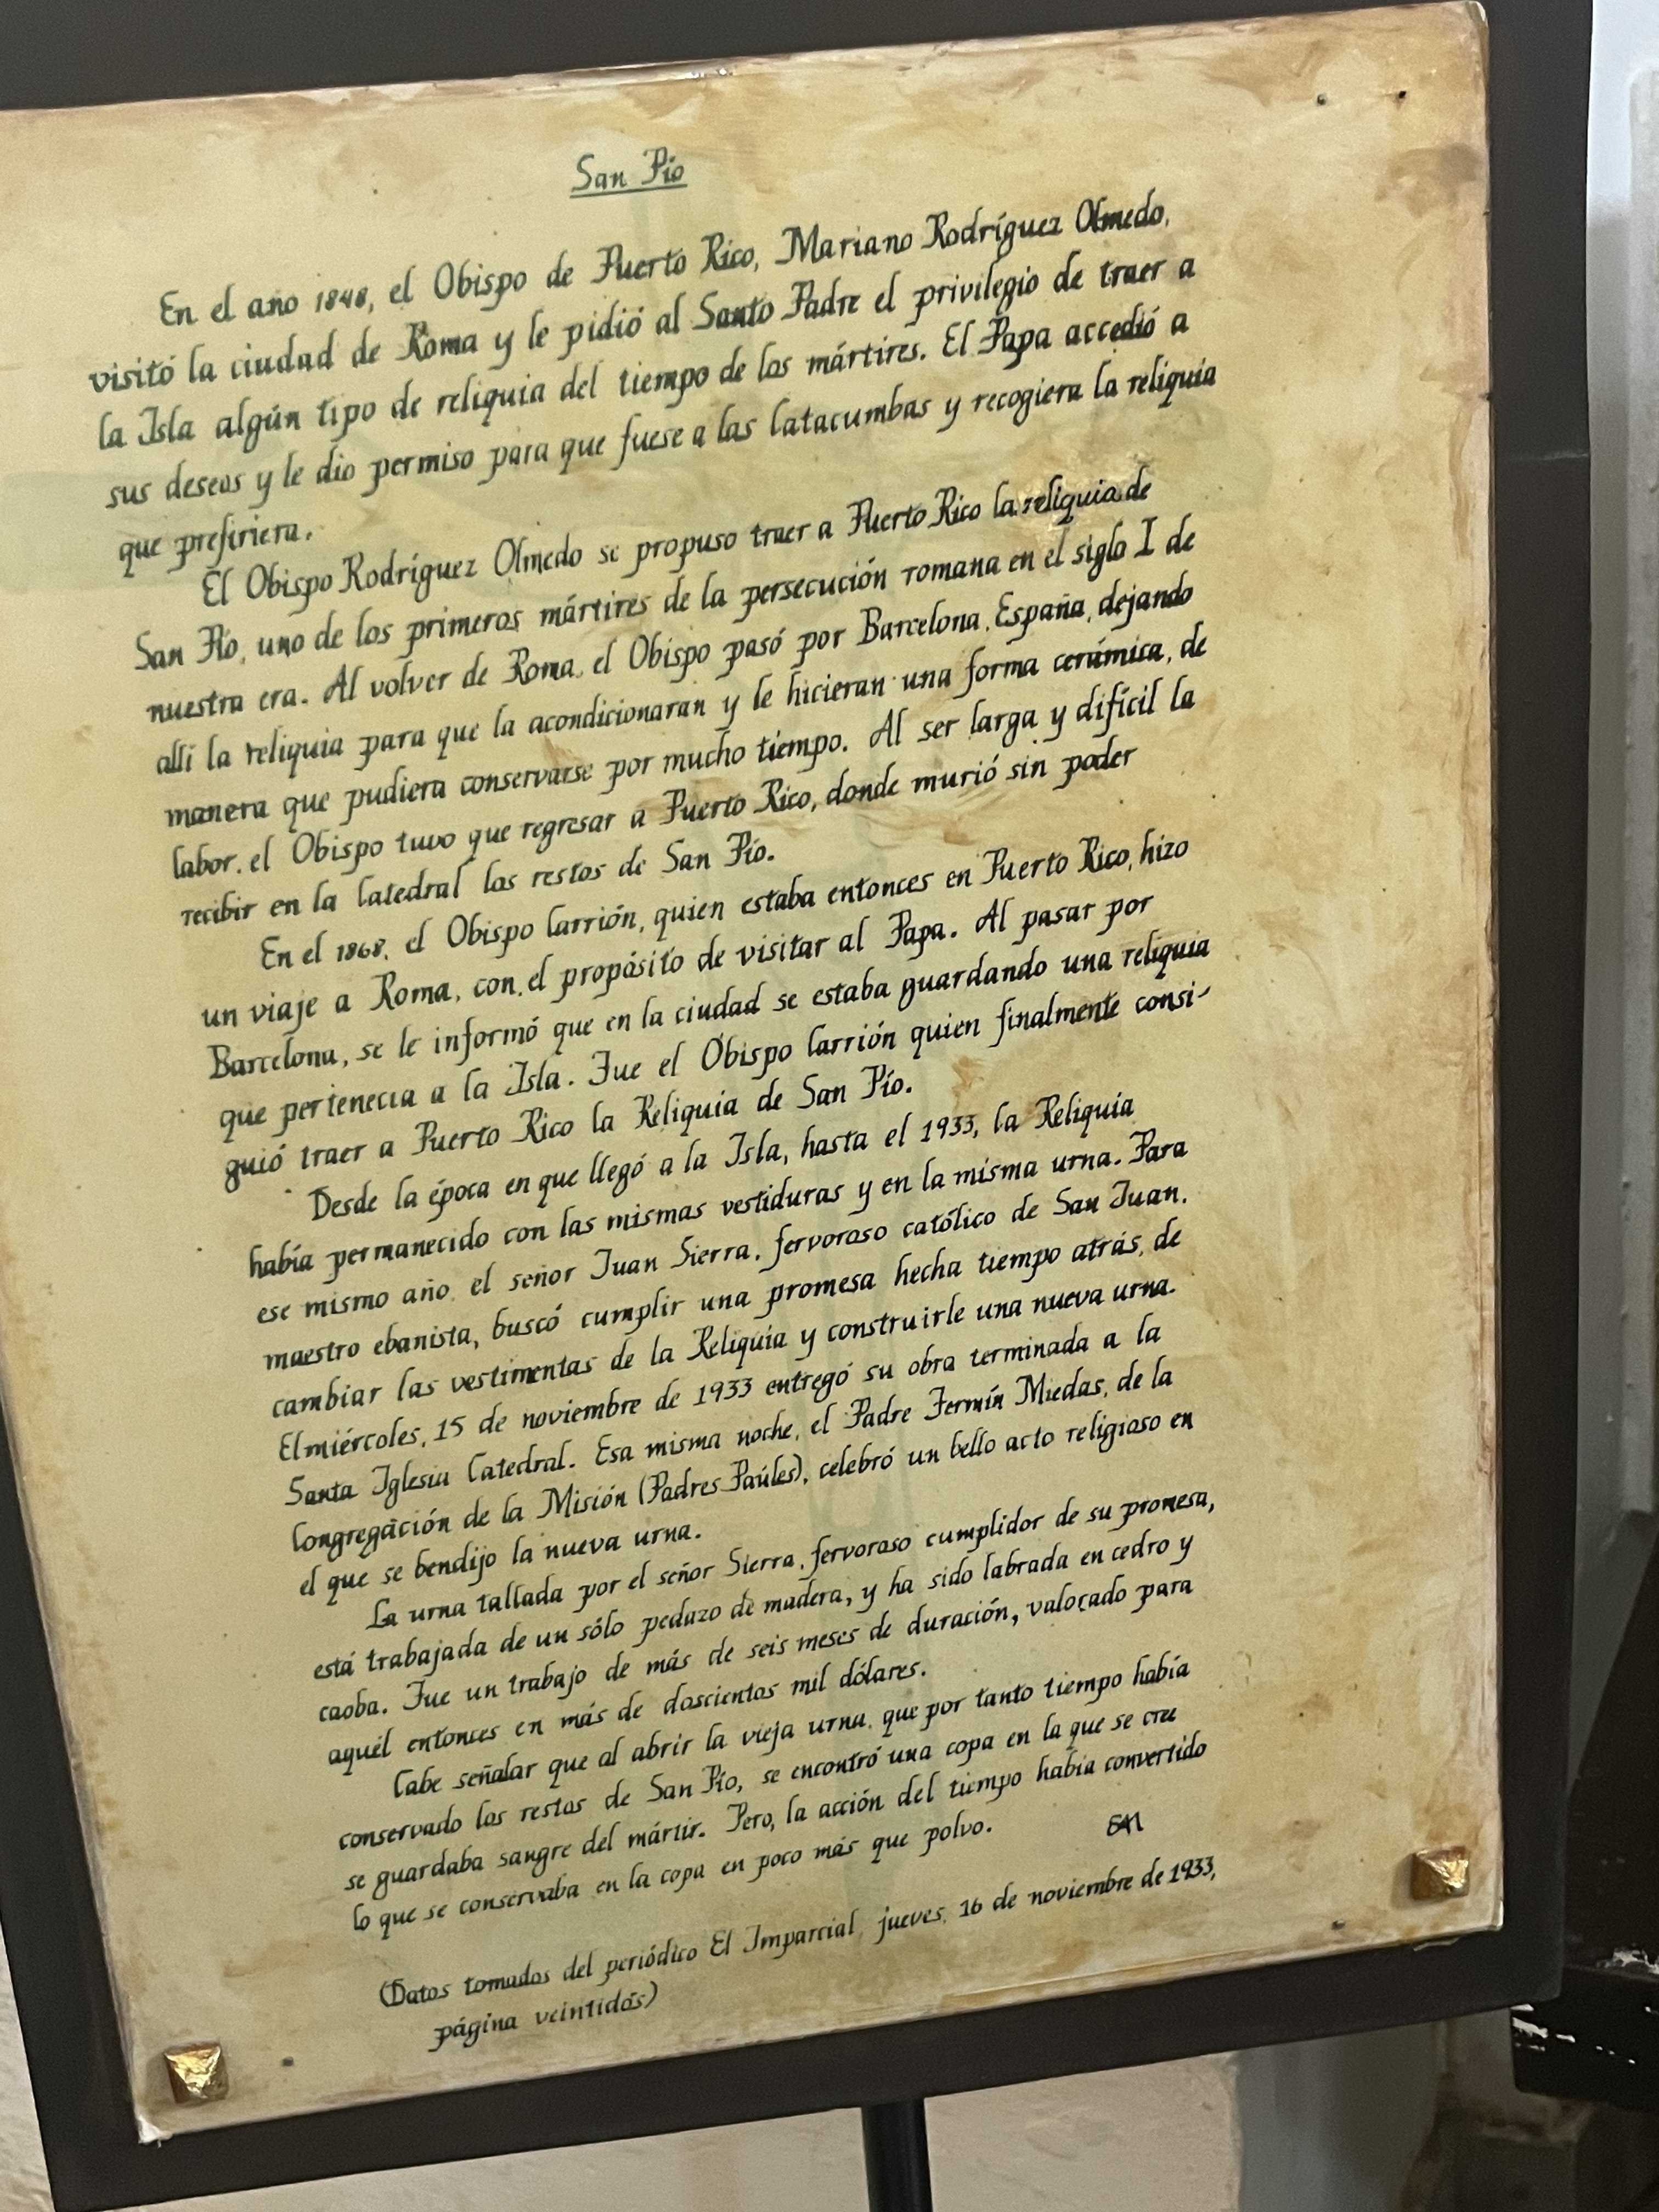 San Pío
En el año 1848, el Obispo de Puerto Rico, Mariano Rodríguez Olmedo,
visitó la ciudad de Roma y le pidió al Santo Padre el privilegio de traer a
la Isla algún tipo de reliquia del tiempo de los mártires. El Papa accedió a
sus deseos y le dio permiso para que fuese a las Catacumbas y recogiera la reliquia
que prefiriera.
El Obispo Rodríguez Olmedo se propuso traer a Puerto Rico la reliquia de
San Pío, uno de los primeros mártires de la persecución romana en el siglo I de
nuestra era. Al volver de Roma, el Obispo pasó por Barcelona, España, dejando
allí la reliquia para que la acondicionaran y le hicieran una forma cerámica, de
manera que pudiera conservarse por mucho tiempo. Al ser larga y difícil la
labor, el Obispo tuvo que regresar a Puerto Rico, donde murió sin poder
recibir en la Catedral los restos de San Pío.
En el 1868, el Obispo Carrión, quien estaba entonces en Puerto Rico, hizo
un viaje a Roma, con el propósito de visitar al Papa. Al pasar por
Barcelona, se le informó que en la ciudad se estaba guardando una reliquia
que pertenecía a la Isla. Fue el Obispo Carrión quien finalmente consi-
guió traer a Puerto Rico la Reliquia de San Pío.
Desde la época en que llegó a la Isla, hasta el 1933, la Reliquia
había permanecido con las mismas vestiduras y en la misma urna. Para
ese mismo año, el señor Juan Sierra, fervoroso católico de San Juan,
maestro ebanista, buscó cumplir una promesa hecha tiempo atrás, de
cambiar las vestimentas de la Reliquia y construirle una nueva urna.
El miércoles, 15 de noviembre de 1933 entregó su obra terminada a la
Santa Iglesia Catedral. Esa misma noche, el Padre Fermín Miedas, de la
Congregación de la Misión (Padres Paúles), celebró un bello acto religioso en
el que se bendijo la nueva urna.
La urna tallada por el señor Sierra, fervoroso cumplidor de su promesa,
está trabajada de un sólo pedazo de madera, y ha sido labrada en cedro y
caoba. Fue un trabajo de más de seis meses de duración, valocado para
aquél entonces en más de doscientos mil dólares.
Cabe señalar que al abrir la vieja urna, que por tanto tiempo había
conservado los restos de San Pío, se encontró una copa en la que se cree
se guardaba sangre del mártir. Pero, la acción del tiempo había convertido
lo que se conservaba en la copa en poco más que polvo.
(Datos tomados del periódico El Imparcial, jueves, 16 de noviembre de 1933,
página veintidós)